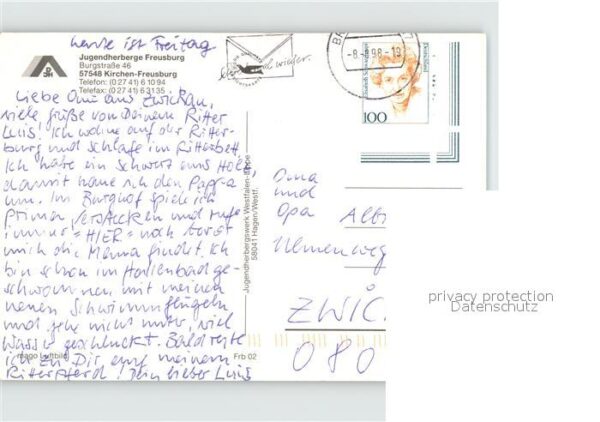 heute ist Freitag
Jugendherberge Freusburg
Burgstraße 46
57548 Kirchen-Freusburg
Telefon: (0 27 41) 6 10 94
Telefax: (0 27 41) 6 31 35
DJH
Liebe Omi aus Zwickau,
viele grüße von Deinem Ritter
Luis! Ich wohne auf der Ritter-
burg und schlafe im Ritterbett
Ich habe ein Schwert aus Holz,
damit haue ich den Papa
um. Im Burghof spiele ich
Prima verstecken und rufe
immer =HIER= noch bevor
mich die Mama findet. Ich
bin schon im Hallenbad ge-
schwommen mit meinen
neuen Schwimmflügeln
und gehe nicht unter, viel
Wasser geschluckt. Bald reite
ich zu Dir auf meinem
Ritterpferd! Dein lieber Luis
Luftbild
Frb 02
Jugendherbergswerk Westfalen-Lippe
58041 Hagen/Westf.
mal wieder.
-8.-98-19
Deutschland
100
Oma
und
Opa
Ulmenweg
ZWIC
080
privacy protection
Datenschutz